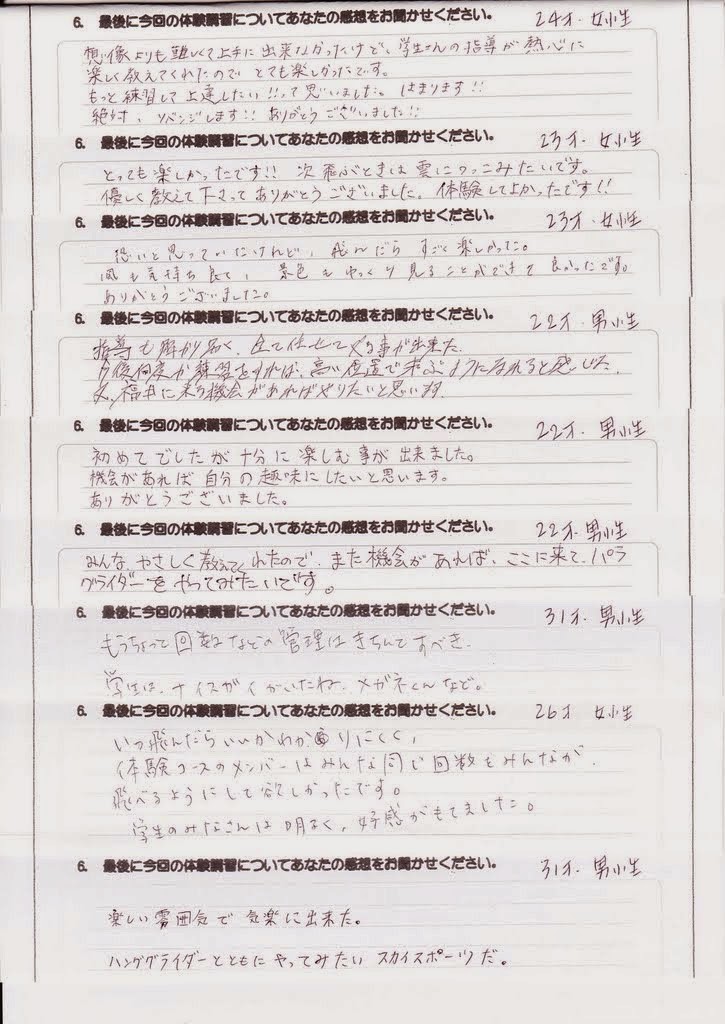 6. 最後に今回の体験講習についてあなたの感想をお聞かせください。 24才.女性
想像よりも難しくて上手に出来なかったけど、学生さんの指導が熱心に
楽しく教えてくれたので とても楽しかったです。
もっと練習して上達したい!!って思いました。はまります!!
絶対、リベンジします!! ありがとうございました!!
6. 最後に今回の体験講習についてあなたの感想をお聞かせください。 23才.女性
とっても楽しかったです!! 次飛ぶときは雲につっこみたいです。
優しく教えて下さってありがとうございました。体験してよかったです!!
6. 最後に今回の体験講習についてあなたの感想をお聞かせください。 23才.女性
恐いと思っていたけれど、飛んだら すごく楽しかった。
風も気持ち良くて、景色もゆっくり見ることができて良かったです。
ありがとうございました。
6. 最後に今回の体験講習についてあなたの感想をお聞かせください。 22才.男性
指導も解かり易く、全て任せてやる事が出来た。
今後何度か練習をすれば、高い位置で飛ぶようになれると感じた。
又、福井に来る機会があればやりたいと思います
6. 最後に今回の体験講習についてあなたの感想をお聞かせください。 22才.男性
初めてでしたが十分に楽しむ事が出来ました。
機会があれば自分の趣味にしたいと思います。
ありがとうございました。
6. 最後に今回の体験講習についてあなたの感想をお聞かせください。 22才.男性
みんな、やさしく教えてくれたので、また機会があれば、ここに来て、パラ
グライダーをやってみたいです。
6. 最後に今回の体験講習についてあなたの感想をお聞かせください。 31才.男性
もうちょって回数などの管理はきちんとすべき.
学生は、ナイスガイがいたね、メガネくんなど。
6. 最後に今回の体験講習についてあなたの感想をお聞かせください。 26才 女性
いつ飛んだらいいかわかりにくく、
体験コースのメンバーはみんな同じ回数をみんなが
飛べるようにして欲しかったです。
学生のみなさんは明るく、好感がもてました。
6. 最後に今回の体験講習についてあなたの感想をお聞かせください。 31才.男性
楽しい雰囲気で気楽に出来た。
ハンググライダーとともにやってみたい スカイスポーツだ。